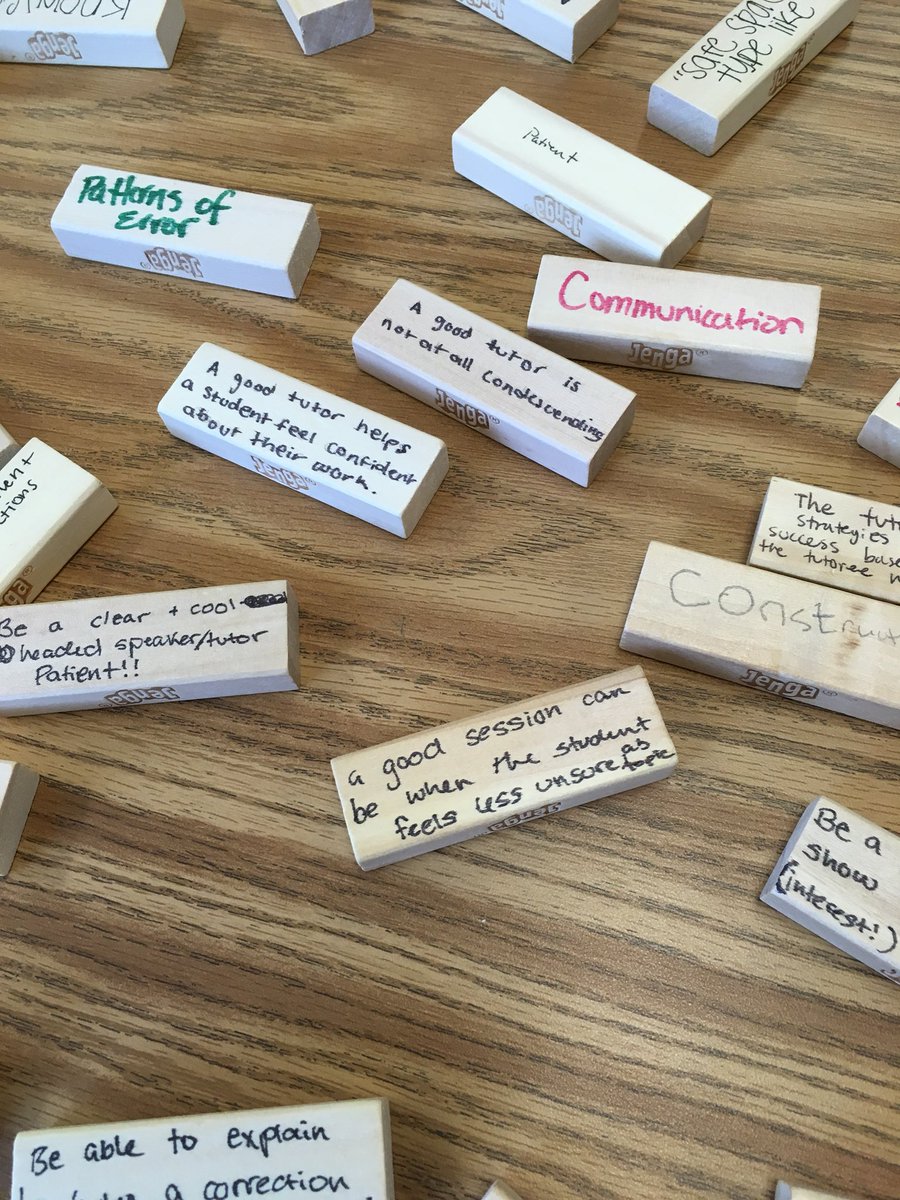 "safe spa
type like
Patient
Patterns of
Error
Jenga
Jenga
Communication
Jenga
A good tutor is
not at all condescending
Jenga
A good tutor helps
a student feel confident
about their work.
Jenga
ctions
The tut
strategies
success base
the tutoree
Construct
Jenga
Be a clear + cool
headed speaker/tutor
Patient!!
Jenga
a good session can
be when the student
feels less unsure as
topic
Jenga
Be a
show
(interest!)
Be able to explain
a correction